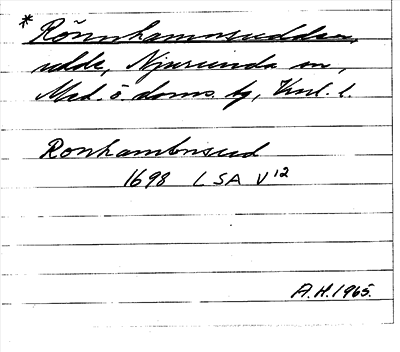 * Rönnhamnsudden,
udde, Njurunda sn,
Med. ö. doms. tg, Vnl. l.
Ronhambnsud
1698 LSA V12
A.H. 1965.